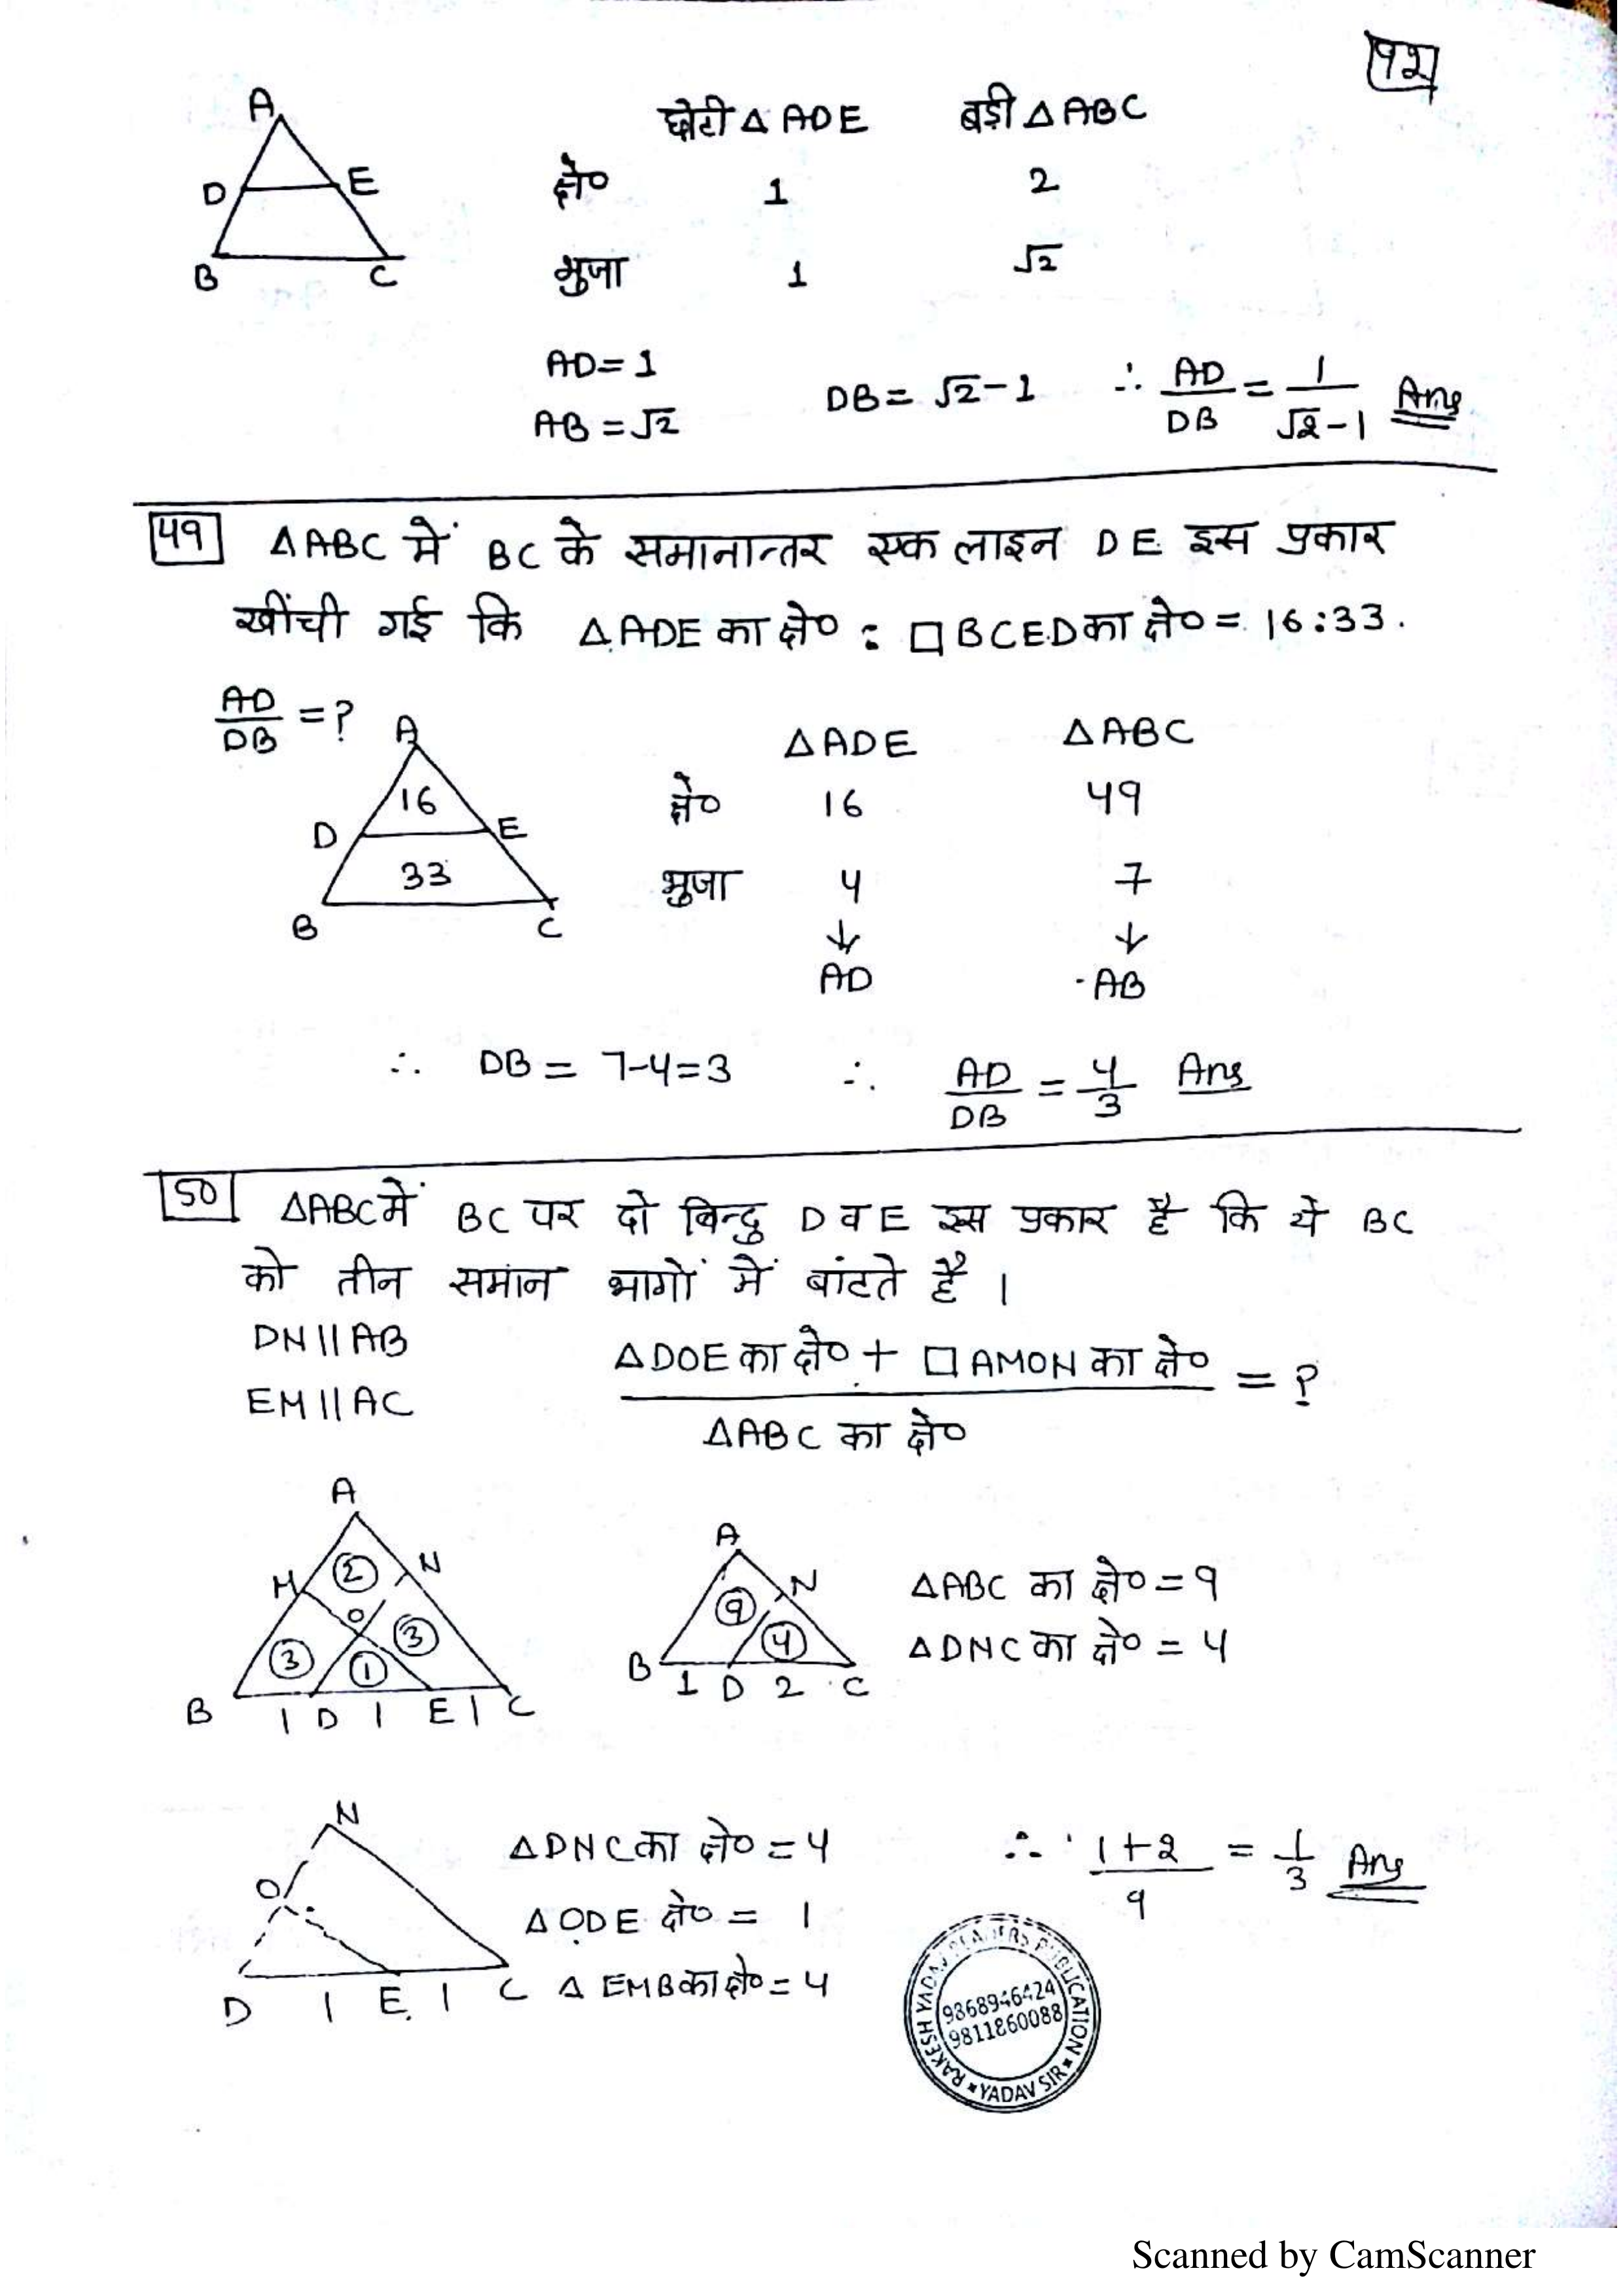 92
A
छोटी △ ADE बड़ी △ ABC
D E
क्षे० 1 2
B C
भुजा 1 √2
AD = 1
AB = √2
DB = √2 - 1 ∴ AD/DB = 1/(√2 - 1) Ans
49 △ABC में BC के समानान्तर एक लाइन DE इस प्रकार
खींची गई कि △ADE का क्षे० : □BCED का क्षे० = 16:33.
AD/DB = ?
A
△ADE △ABC
16
क्षे० 16 49
D E
33
भुजा 4 7
B C
↓ ↓
AD AB
∴ DB = 7-4=3 ∴ AD/DB = 4/3 Ans
50 △ABC में BC पर दो बिन्दु D व E इस प्रकार है कि ये BC
को तीन समान भागों में बांटते है ।
DN||AB
EM||AC
△DOE का क्षे० + □AMON का क्षे० / △ABC का क्षे० = ?
A
M 2 N
O
3 1 3
B 1 D 1 E 1 C
A
N
9 4
B 1 D 2 C
△ABC का क्षे० = 9
△DNC का क्षे० = 4
N
O
D 1 E 1 C
△DNC का क्षे० = 4
△ODE क्षे० = 1
△EMB का क्षे० = 4
∴ (1+2)/9 = 1/3 Ans
RAKESH YADAV READERS PUBLICATION
9868946424
9811860088
YADAV SIR
Scanned by CamScanner